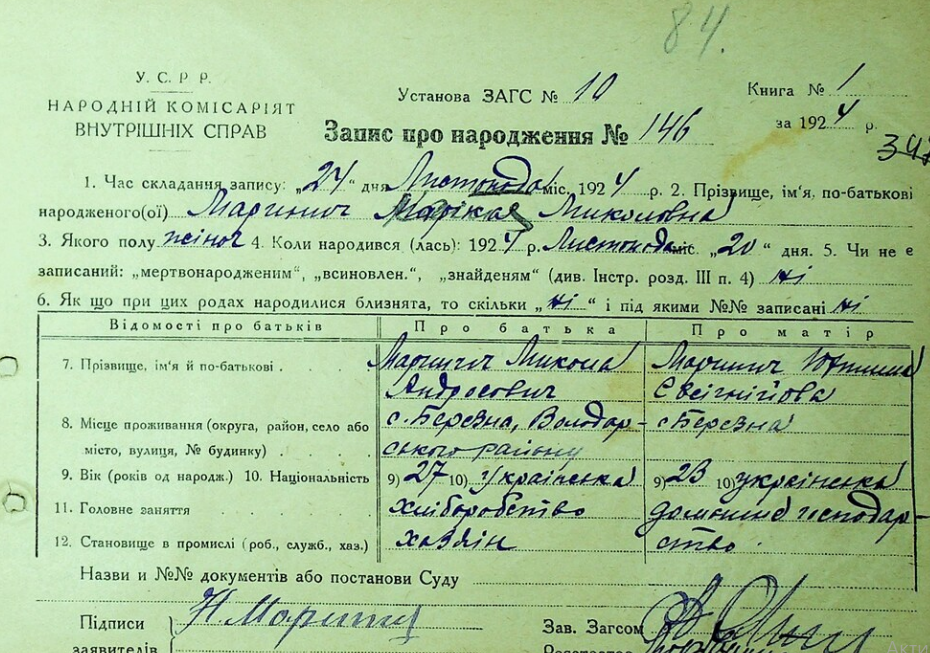 84.
У. С. Р Р.
НАРОДНІЙ КОМІСАРІЯТ
ВНУТРІШНІХ СПРАВ
Установа ЗАГС № 10
Книга № 1
за 1924 р.
Запис про народження № 146
1. Час складання запису: „24" дня Листопада міс. 1924 р. 2. Прізвище, ім'я, по-батькові
народженого(ої) Маринич Миколовна
3. Якого полу жіноч 4. Коли народився (лась): 1924 р. Листопада міс. „20" дня. 5. Чи не є
записаний: „мертвонародженим", „всиновлен.", „знайденям" (див. Інстр. розд. III п. 4) Ні
6. Як що при цих родах народилися близнята, то скільки „Ні" і під якими №№ записані Ні
Відомості про батьків Про батька Про матір
7. Прізвище, ім'я й по-батькові Маринич Микола Маринич
Андросович
8. Місце проживання (округа, район, село або с. Березна, Володар- с Березна
місто, вулиця, № будинку) ського району
9. Вік (років од народж.) 10. Національність 9) 27 10) Українська 9) 23 10) українська
11. Головне заняття хліборобство домашнє господар-
12. Становище в промислі (роб., служб., хаз.) хазяїн ство.
Назви и №№ документів або постанови Суду
Підписи Н. Маринич Зав. Загсом
заявителів